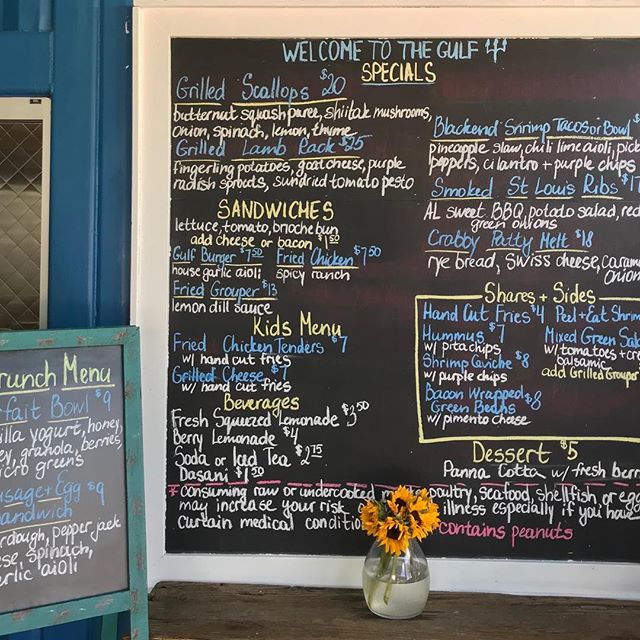 WELCOME TO THE GULF
SPECIALS
Grilled Scallops $20
butternut squash puree, shiitak mushrooms,
onion, spinach, lemon, thyme
Grilled Lamb Rack $25
fingerling potatoes, goat cheese, purple
radish sprouts, sundried tomato pesto
SANDWICHES
lettuce, tomato, brioche bun
add cheese or bacon $1.50
Gulf Burger $7.50 Fried Chicken $7.50
house garlic aioli spicy ranch
Fried Grouper $13
lemon dill sauce
Kids Menu
Fried Chicken Tenders $7
w/ hand cut fries
Grilled Cheese $7
w/ hand cut fries
Beverages
Fresh Squeezed Lemonade $3.50
Berry Lemonade $4
Soda or Iced Tea $2.75
Dasani $1.50
Blackend Shrimp Tacos or Bowl $
pineapple slaw, chili lime aioli, pick
peppers, cilantro + purple chips
Smoked St Louis Ribs $17
AL sweet BBQ, potato salad, red
green onions
Crabby Patty Melt $18
rye bread, swiss cheese, caram
onion
Shares + Sides
Hand Cut Fries $4
Hummus $7
w/ pita chips
Shrimp Ceviche $8
w/ purple chips
Bacon Wrapped
Green Beans $8
w/ pimento cheese
Peel + Eat Shrim
Mixed Green Sala
w/ tomatoes + cre
balsamic
add Grilled Grouper
Dessert $5
Panna Cotta w/ fresh berr
* consuming raw or undercooked poultry, seafood, shellfish, or egg
may increase your risk illness especially if you have
curtain medical condition
contains peanuts
runch Menu
rfait Bowl $9
illa yogurt, honey,
ey, granola, berries,
icro greens
usage + Egg $9
andwich
urdough, pepper jack
ese, spinach,
arlic aioli